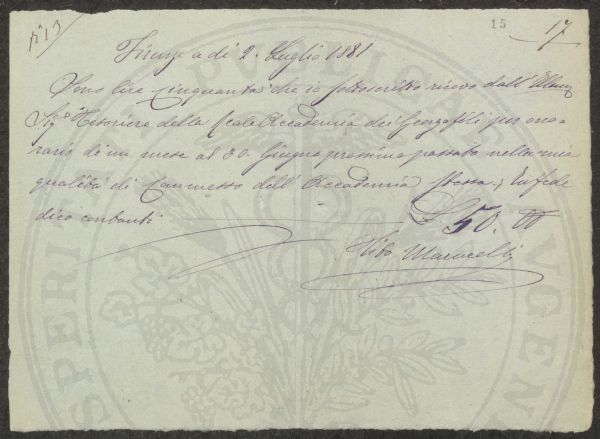 n° 13
15
17
Firenze a dì 2. Luglio 1881
Sono lire Cinquanta che io sottoscritto ricevo dall' Illmo
Sigr Tesoriere della Reale Accademia dei Georgofili per ono-
rario di un mese al 30. Giugno prossimo passato nella mia
qualità di Commesso dell' Accademia stessa, Infede
dico contanti
£ 50. 00
Marucelli
PUBBLICA
PROSPERI
AUGENDA